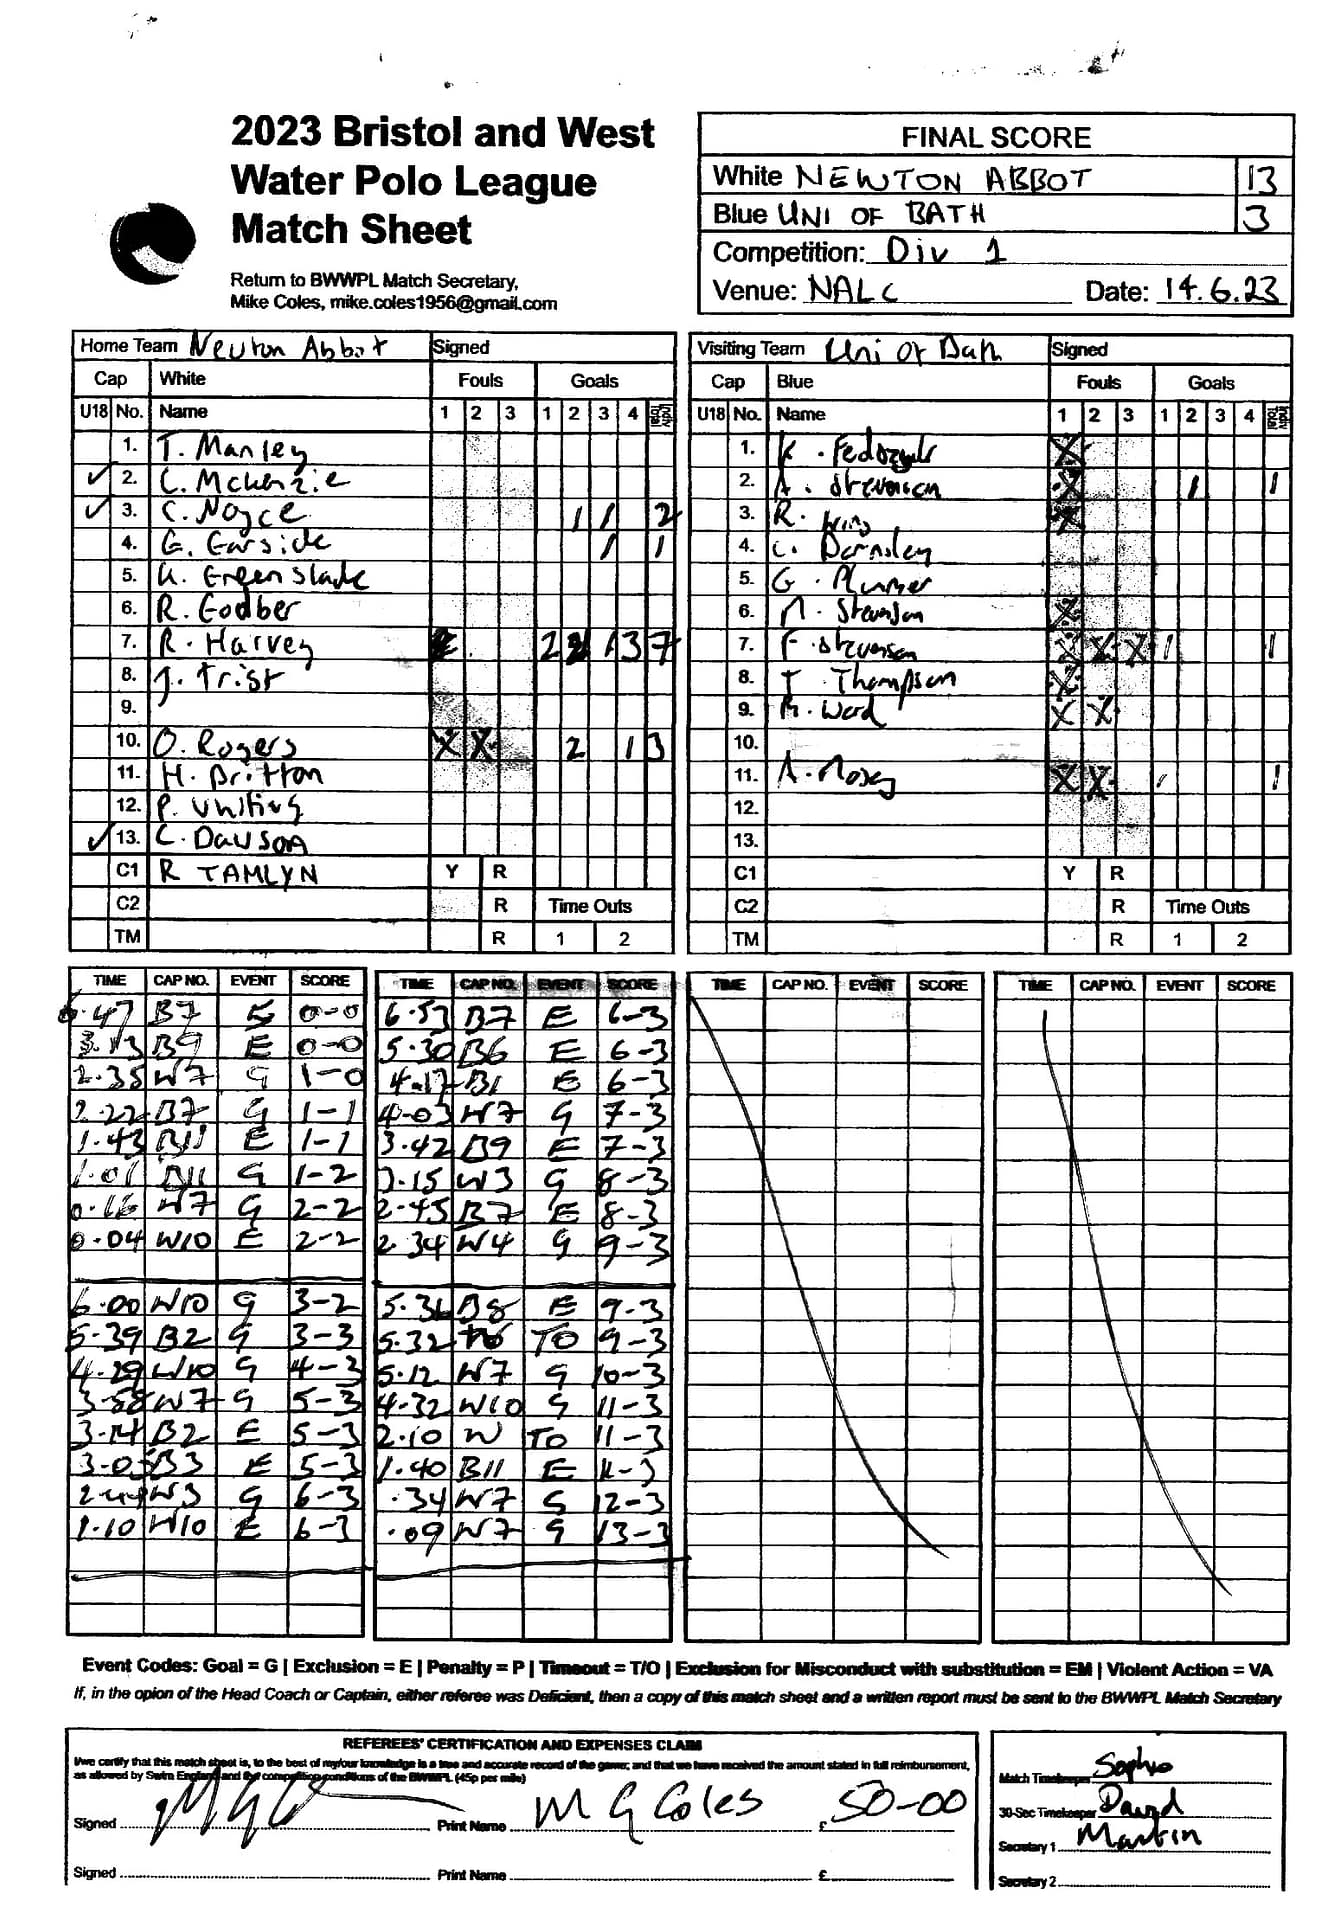 2023 Bristol and West
Water Polo League
Match Sheet
Return to BWWPL Match Secretary,
Mike Coles, mike.coles1956@gmail.com
FINAL SCORE
White NEWTON ABBOT 13
Blue UNI OF BATH 3
Competition: Div 1
Venue: NALC Date: 14.6.23
Home Team Newton Abbot Signed
Cap White Fouls Goals
U18 No. Name 1 2 3 1 2 3 4
1. T. Manley
✓ 2. C. Mckenzie
✓ 3. C. Noyce 1 1 2
4. G. Garside 1 1
5. K. Greenslade
6. R. Godber
7. R. Harvey 2 1 3 7
8. J. Trist
9.
10. O. Rogers X X 2 1 3
11. H. Britton
12. P. Whiting
✓ 13. C. Dawson
C1 R TAMLYN Y R
C2 R Time Outs
TM R 1 2
Visiting Team Uni of Bath Signed
Cap Blue Fouls Goals
U18 No. Name 1 2 3 1 2 3 4
1. K. X
2. A. Stevenson X 1 1
3. R. X
4. C. Barnsley
5. G. Plummer
6. M. Stevenson X
7. F. Stevenson X X X 1 1
8. T. Thompson X
9. R. Ward X X
10.
11. A. Moxey X X 1 1
12.
13.
C1 Y R
C2 R Time Outs
TM R 1 2
TIME CAP NO. EVENT SCORE
6.47 B7 E 0-0
3.13 B9 E 0-0
2.35 W7 G 1-0
2.22 B7 G 1-1
1.43 B11 E 1-1
1.01 B11 G 1-2
0.16 W7 G 2-2
0.04 W10 E 2-2
6.00 W10 G 3-2
5.39 B2 G 3-3
4.29 W10 G 4-3
3.58 W7 G 5-3
3.14 B2 E 5-3
3.05 B3 E 5-3
2.44 W3 G 6-3
1.10 W10 E 6-3
TIME CAP NO. EVENT SCORE
6.53 B7 E 6-3
5.30 B6 E 6-3
4.17 B1 E 6-3
4.03 W7 G 7-3
3.42 B9 E 7-3
3.15 W3 G 8-3
2.45 B7 E 8-3
2.34 W4 G 9-3
5.36 B8 E 9-3
5.32 TO 9-3
5.12 W7 G 10-3
4.32 W10 G 11-3
2.10 W TO 11-3
1.40 B11 E 11-3
.34 W7 G 12-3
.09 W7 G 13-3
TIME CAP NO. EVENT SCORE
TIME CAP NO. EVENT SCORE
Event Codes: Goal = G | Exclusion = E | Penalty = P | Timeout = T/O | Exclusion for Misconduct with substitution = EM | Violent Action = VA
If, in the opion of the Head Coach or Captain, either referee was Deficient, then a copy of this match sheet and a written report must be sent to the BWWPL Match Secretary
REFEREES' CERTIFICATION AND EXPENSES CLAIM
I/we certify that this match sheet is, to the best of my/our knowledge is a true and accurate record of the game, and that we have received the amount stated in full reimbursement,
as allowed by Swim England and the competition conditions of the BWWPL (45p per mile)
Signed Print Name M G Coles £ 50-00
Signed Print Name £
Match Timekeeper Sophie
30-Sec Timekeeper David
Secretary 1 Martin
Secretary 2